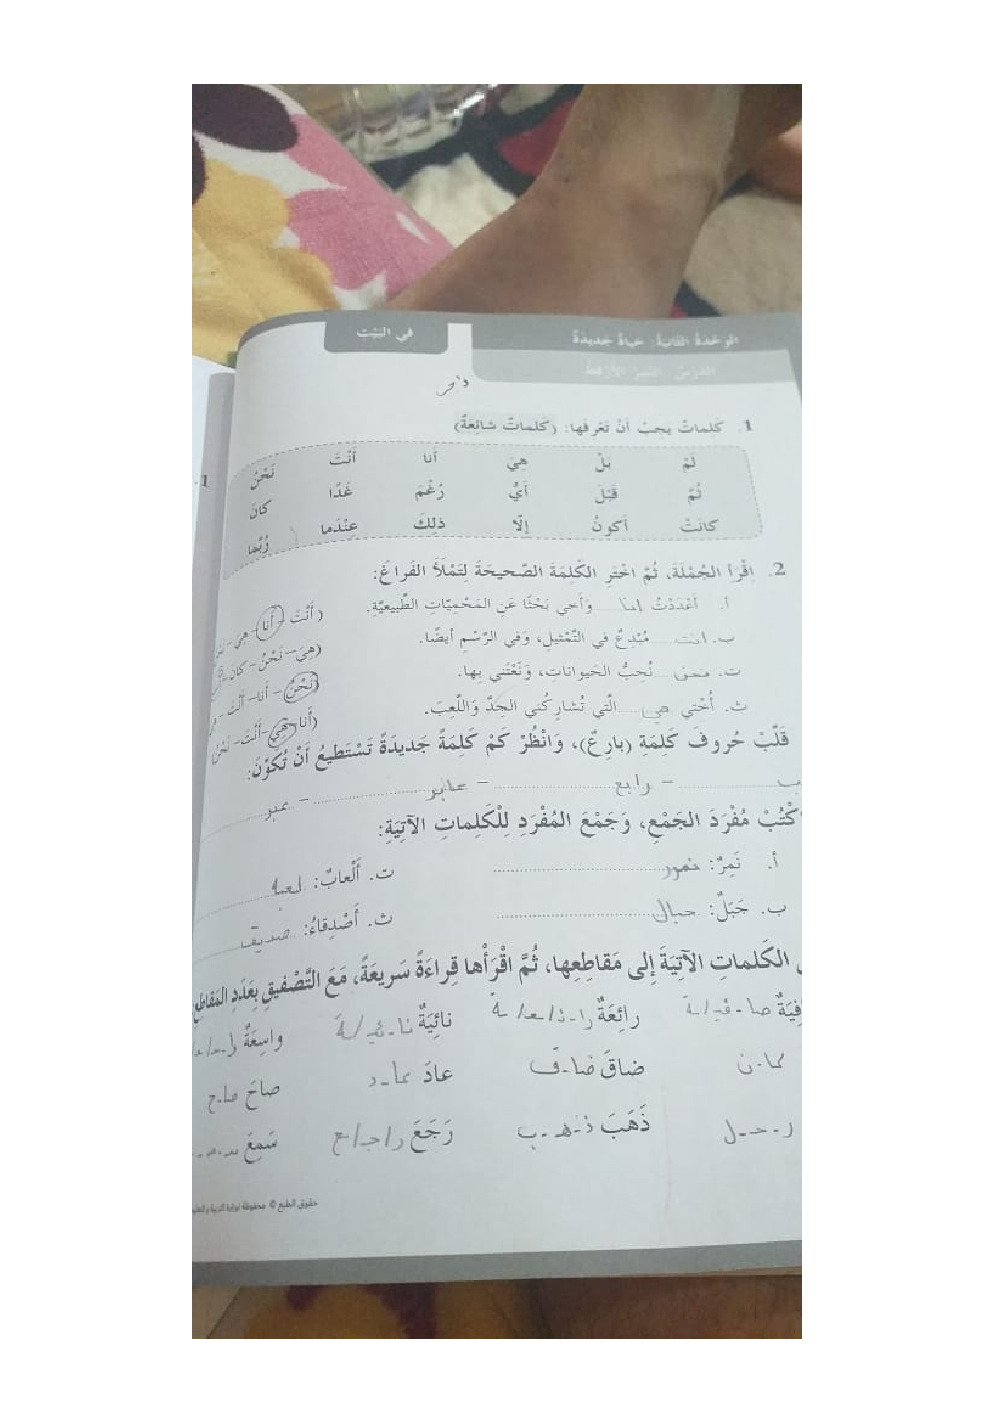 في البيت
الوحدة الثانية: حياة جديدة
الدرس: النمر الأرقط
1. كَلِماتٌ يَجِبُ أَنْ تَعْرِفَها: (كَلِماتٌ شائِعَةٌ)
لَمْ بَلْ هِيَ أَنا أَنْتَ نَحْنُ
ثُمَّ قَبْلَ أَيُّ رُغْمَ غَدًا كانَ
كانَتْ أَكونُ إِلّا ذلِكَ عِنْدَما رُبَّما
2. اِقْرَأِ الجُمْلَةَ، ثُمَّ اخْتَرِ الكَلِمَةَ الصَّحيحَةَ لِتَمْلَأَ الفَراغَ:
أ. أَعْدَدْتُ انا وَأَخي بَحْثًا عَنِ المَحْمِيّاتِ الطَّبيعِيَّةِ. (أَنْتَ - أَنا - هِيَ -
ب. انت مُبْدِعٌ في التَّمْثيلِ، وَفي الرَّسْمِ أَيْضًا. (هِيَ - نَحْنُ - كانَ -
ت. نحن نُحِبُّ الحَيَواناتِ، وَنَعْتَني بِها. (نَحْنُ - أَنا - أَنْتَ -
ث. أُخْتي هي الَّتي تُشارِكُني الجِدَّ وَاللَّعِبَ. (أَنا - هِيَ - أَنْتَ - نَحْنُ
قَلِّبْ حُروفَ كَلِمَةِ (بارِعٌ)، وَانْظُرْ كَمْ كَلِمَةً جَديدَةً تَسْتَطيعُ أَنْ تُكَوِّنَ:
رابع - عابر - عبر
اكْتُبْ مُفْرَدَ الجَمْعِ، وَجَمْعَ المُفْرَدِ لِلْكَلِماتِ الآتِيَةِ:
أ. نَمِرٌ: نمور ت. أَلْعابٌ: لعبة
ب. جَبَلٌ: جبال ث. أَصْدِقاءُ: صديق
الكَلِماتِ الآتِيَةَ إِلى مَقاطِعِها، ثُمَّ اقْرَأْها قِراءَةً سَريعَةً، مَعَ التَّصْفيقِ بِعَدَدِ المَقاطِعِ
رائِعَةٌ نائِيَةٌ واسِعَةٌ
ضاقَ ضا-ق عادَ عا-د صاحَ صا-ح
ر-ح-ل ذَهَبَ ذ-ه-ب رَجَعَ ر/ج/ع سَمِعَ
حقوق الطبع © محفوظة لوزارة التربية والتعليم